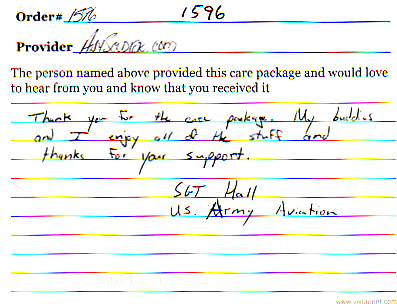 Order# 1596 1596
Provider
The person named above provided this care package and would love
to hear from you and know that you received it
Thank you for the care package. My buddies
and I enjoy all of the stuff and
thanks for your support.
SGT Hall
U.S. Army Aviation
www.vistaprint.com